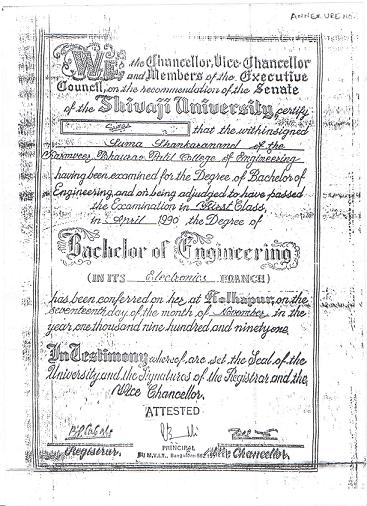 ANNEXURE NO.
We the Chancellor, Vice-Chancellor
and Members of the Executive
Council, on the recommendation of the Senate
of the Shivaji University, certify
that the withinsigned
Suma Shankaranand of the
Karmveer Bhaurao Patil College of Engineering
having been examined for the Degree of Bachelor of
Engineering, and on being adjudged to have passed
the Examination in First Class,
in April 1990 the Degree of
Bachelor of Engineering
(IN ITS Electronics BRANCH)
has been conferred on her, at Kolhapur, on the
seventeenth day of the month of November in the
year, one thousand nine hundred and ninetyone.
In Testimony whereof, are set the Seal of the
University, and the Signatures of the Registrar and the
Vice Chancellor.
ATTESTED
Registrar.
PRINCIPAL
Chancellor.